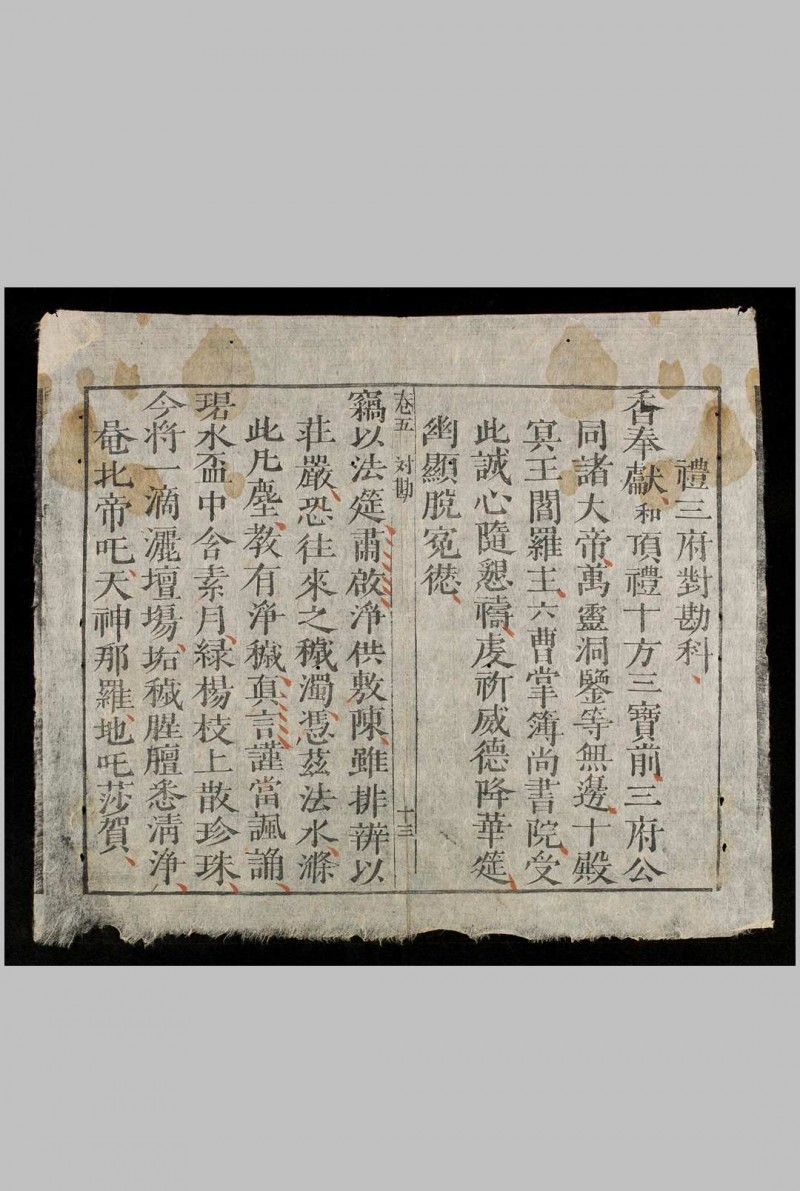 禮三府對勘科
香奉獻和頂禮十方三寶前三府公
同諸大帝萬靈洞鑒等無邊十殿
冥王閻羅主六曹掌簿尚書院受
此誠心隨懇禱虔祈威德降華筵
幽顯脫冤愆
卷五 对勘 十三
竊以法筵肅啟淨供敷陳雖排辦以
莊嚴恐往來之穢濁憑茲法水滌
此凡塵教有淨穢真言謹當諷誦
珺水盃中含素月綠楊枝上散珍珠
今將一滴灑壇場垢穢腥膻悉清淨
唵北帝吒天神那羅地吒莎賀